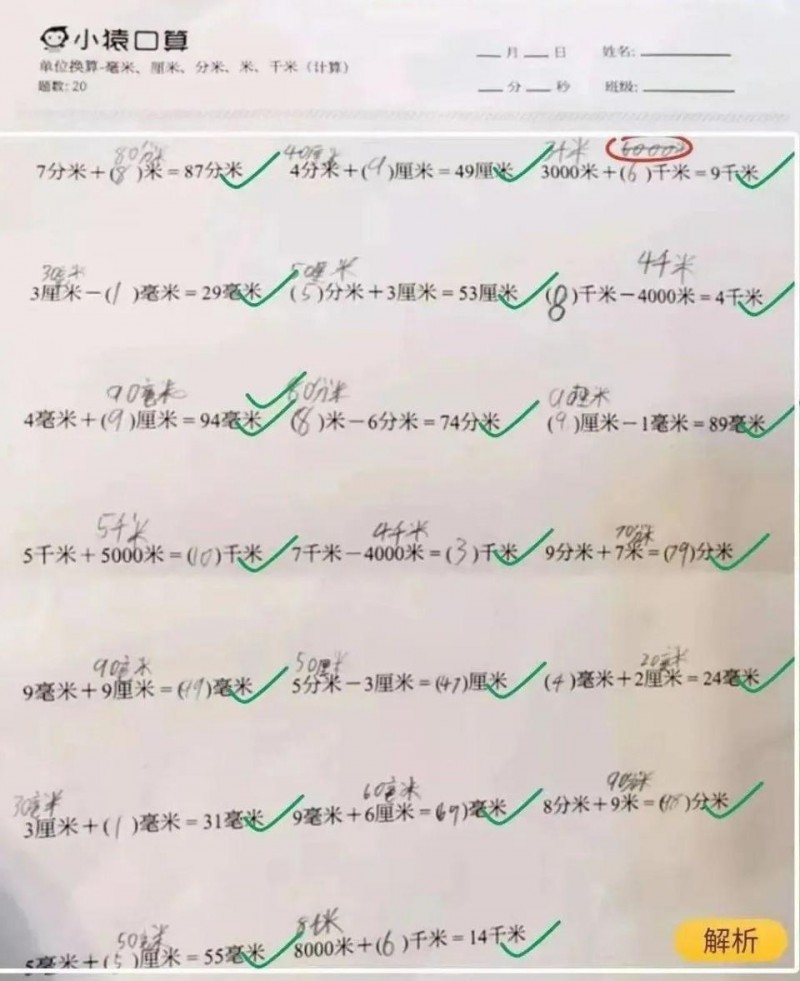 小猿口算
单位换算-毫米、厘米、分米、米、千米（计算）
题数: 20
月 日 姓名:
分 秒 班级:
80分米 40厘米
7分米＋(8)米＝87分米 4分米＋(9)厘米＝49厘米 3000米＋(6)千米＝9千米
30毫米 50厘米 4千米
3厘米－(1)毫米＝29毫米 (5)分米＋3厘米＝53厘米 (8)千米－4000米＝4千米
90毫米 80分米
4毫米＋(9)厘米＝94毫米 (8)米－6分米＝74分米 (9)厘米－1毫米＝89毫米
5千米 4千米 70分米
5千米＋5000米＝(10)千米 7千米－4000米＝(3)千米 9分米＋7米＝(79)分米
90毫米 50厘米 20毫米
9毫米＋9厘米＝( )毫米 5分米－3厘米＝(47)厘米 (4)毫米＋2厘米＝24毫米
30毫米 60毫米 90分米
3厘米＋(1)毫米＝31毫米 9毫米＋6厘米＝(69)毫米 8分米＋9米＝( )分米
50毫米 8千米
5毫米＋(5)厘米＝55毫米 8000米＋(6)千米＝14千米
解析